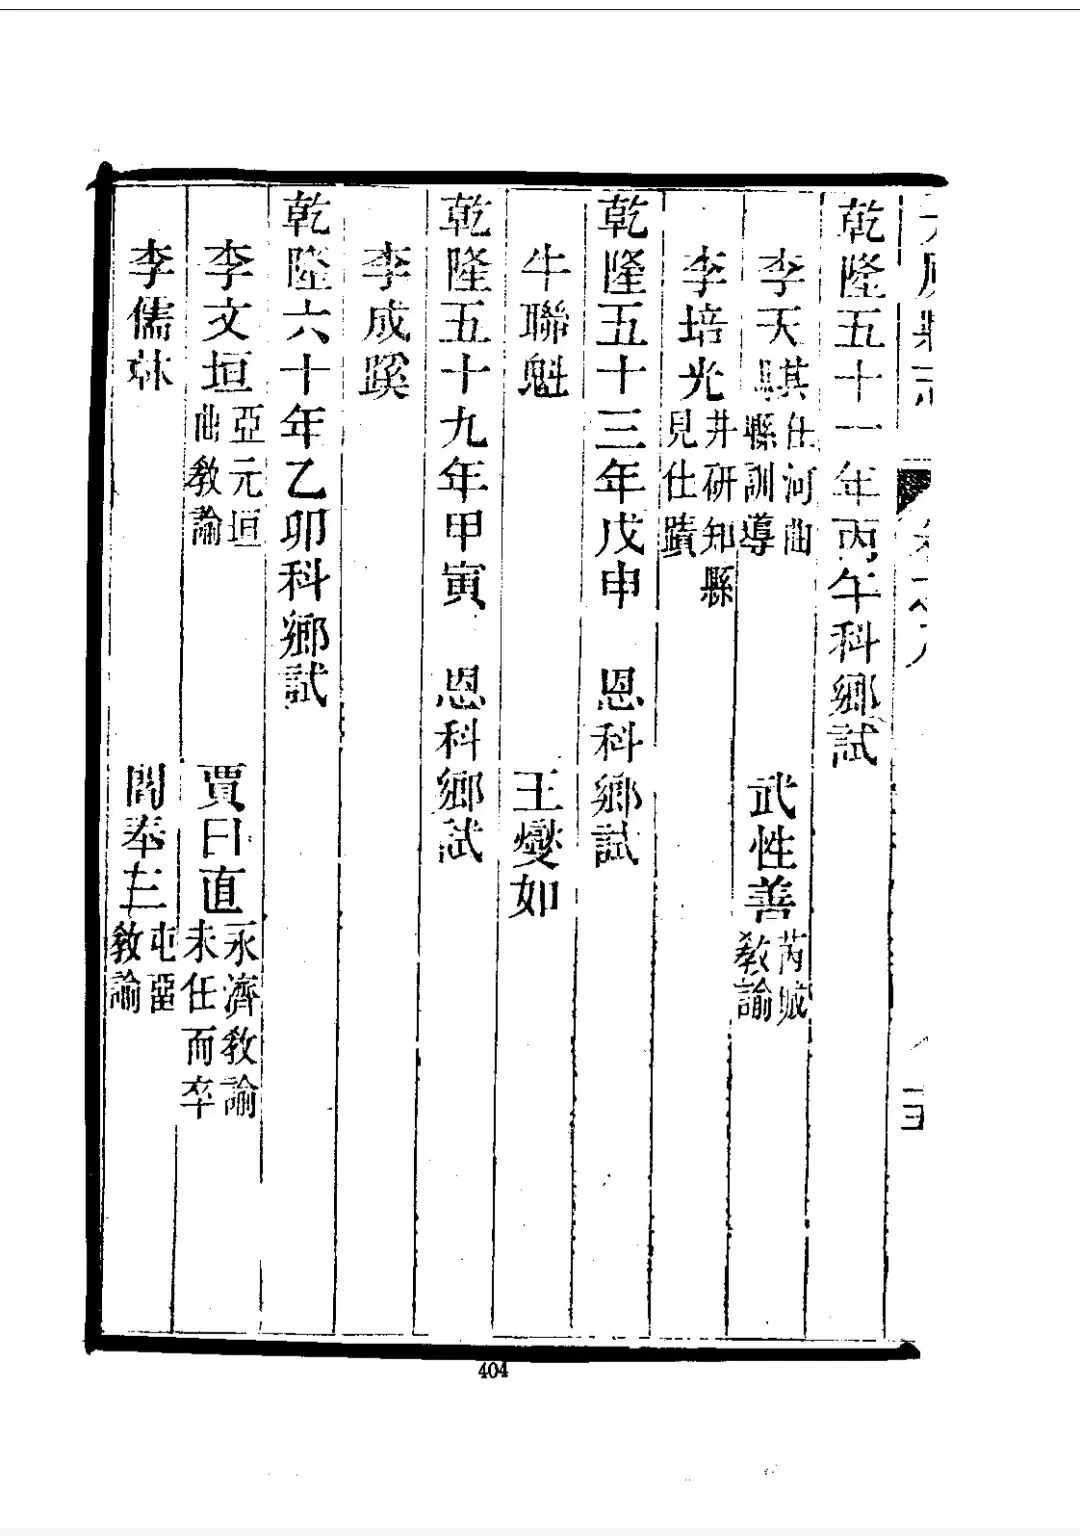 乾隆五十一年丙午科鄉試
李天騏仕河曲縣訓導 武性善芮城教諭
李培光井研知縣見仕蹟
乾隆五十三年戊申 恩科鄉試
牛聯魁 王燮如
乾隆五十九年甲寅 恩科鄉試
李成蹊
乾隆六十年乙卯科鄉試
李文垣亞元垣曲教諭 賈曰直永濟教諭未任而卒
李儒林 閻奉三屯畱教諭
404